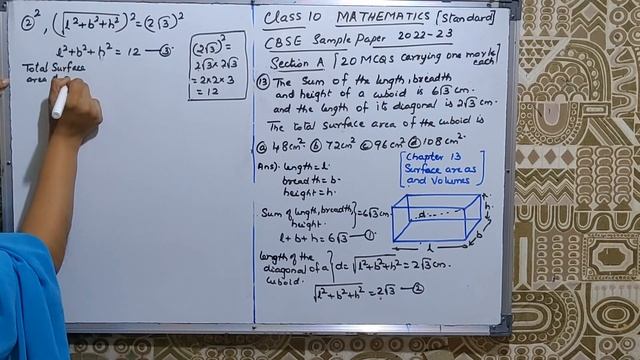 ②², (√l²+b²+h²)² = (2√3)²
l²+b²+h² = 12 —③
Total Surface
area
(2√3)² =
2√3 × 2√3
= 2×2×3
= 12
Class 10 MATHEMATICS [Standard]
CBSE Sample Paper 2022-23
Section A [20 MCQS carrying one mark each]
⑬ The Sum of the length, breadth
and height of a cuboid is 6√3 cm.
and the length of its diagonal is 2√3 cm.
The total surface area of the cuboid is
ⓐ 48cm² ⓑ 72cm² ⓒ 96cm² ⓓ 108cm².
Chapter 13
Surface areas
and Volumes
Ans). length = l.
breadth = b.
height = h.
Sum of length, breadth, height. } = 6√3 cm
l + b + h = 6√3 —①
length of the
diagonal of a
cuboid. } d = √l²+b²+h² = 2√3 cm.
√l²+b²+h² = 2√3 —②
d
h
b
l